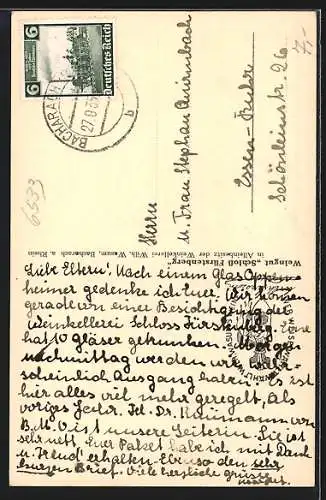 Deutsches Reich
6
6
BACHARACH
27.9.35
b
7,-
6533
Herrn
u. Frau Stephan
Essen-Ruhr
Schönleinstr. 26
Weingut „Schloß Fürstenberg"
in Alleinbesitz der Weinkellerei Wilh. Wasum, Bacharach a. Rhein
Liebe Eltern! Nach einem Glas Oppen-
heimer gedenke ich Euer. Wir kommen
gerade von einer Besichtigung der
Weinkellerei Schloss Fürstenberg. Ene
hat 10 gläser getrunken. Morgen
nachmittag werden wir wahr-
scheinlich Ausgang haben. Es ist
hier alles viel mehr geregelt, als
voriges Jahr. Frl. Dr. Naumann von
B.M.V. ist unsere Leiterin. Sie ist
sehr nett. Euer Paket habe ich mit Dank
u. Freud' erhalten. Ebenso den sehr
kurzen Brief. Viele herzliche Grüsse